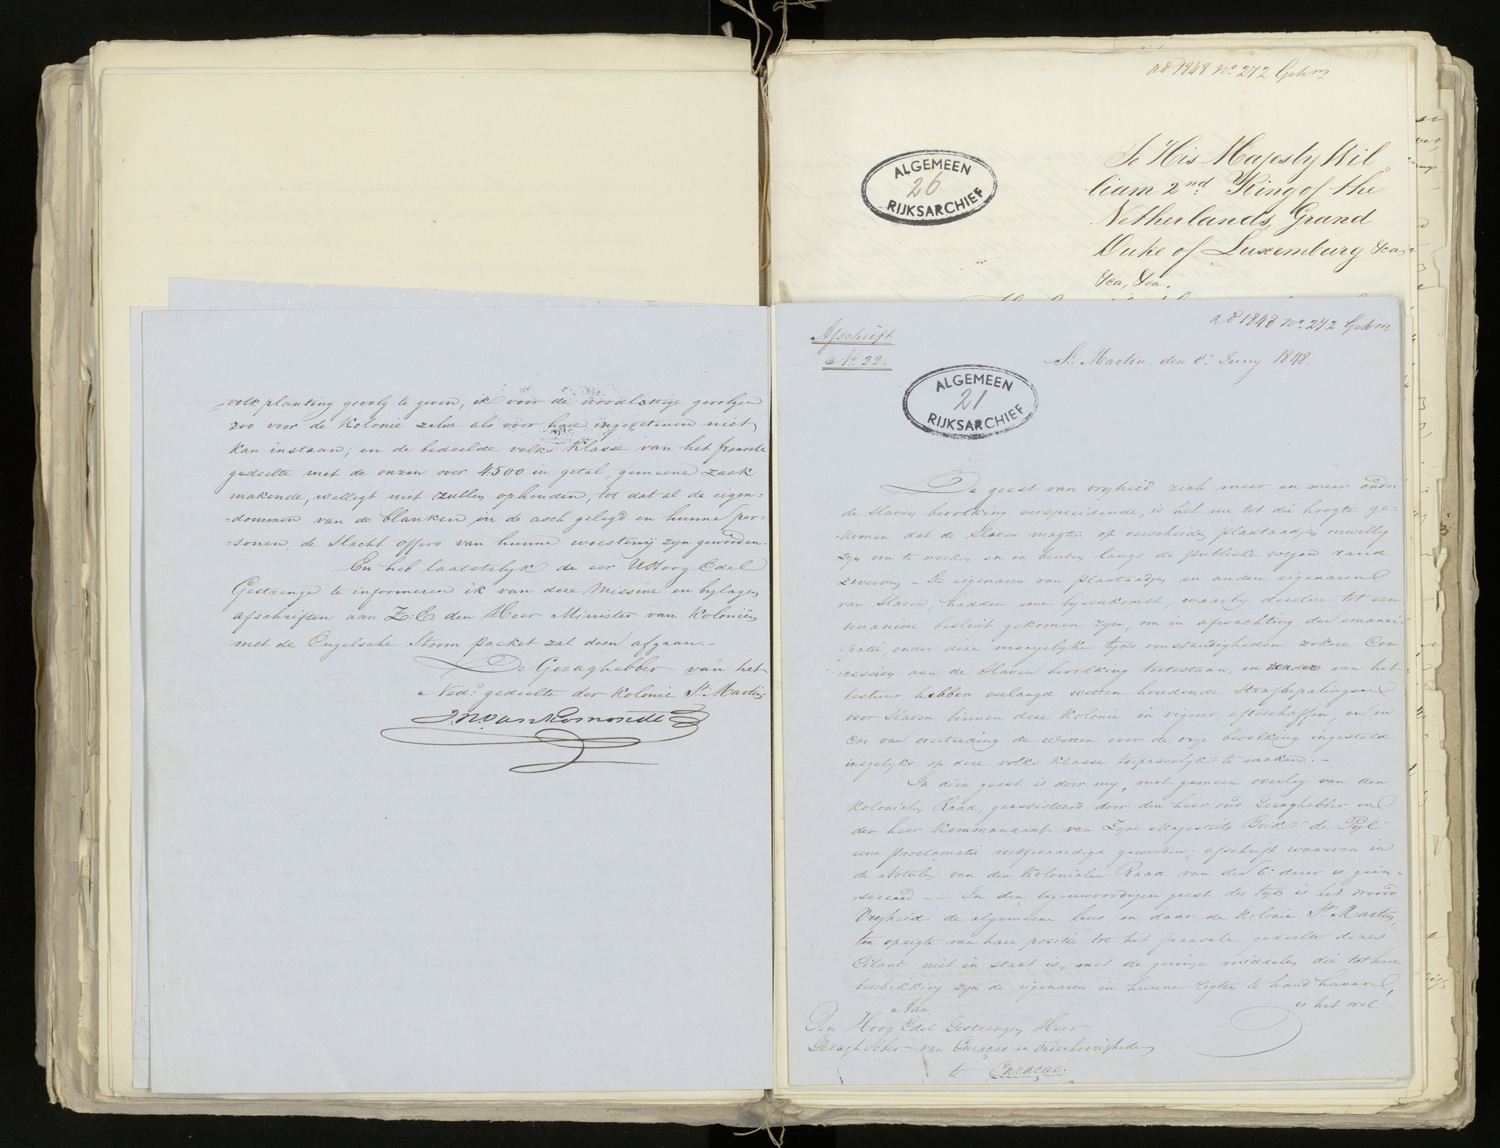 volksplanting gevolg te geven, ik voor de noodlottige gevolgen
zoo voor de kolonie zelve als voor hare ingezetenen niet
kan instaan; en de bedoelde volks klasse van het fransche
gedeelte met de onzen over 4500 in getal, gemeene zaak
makende, welligt niet zullen ophouden, tot dat al de eigen=
=dommen van de blanken in de asch gelegd en hunne per=
=sonen, de slacht offers van hunne woestenij zijn geworden.
En heb laatstelyk de eer UHoog Edel
Gestrenge te informeren ik van deze missive en bylagen
afschriften aan Z:E den Heer Minister van Koloniën
met de Engelsche Stoom packet zal doen afgaan.-
De Gezaghebber van het
Ned: gedeelte der Kolonie St. Martin
a o 1848 No. 272 Geh m
ALGEMEEN
26
RIJKSARCHIEF
To His Majesty Wil
liam 2nd King of the
Netherlands, Grand
Duke of Luxemburg &ca,
&ca, &ca.
a o 1848 No. 272 Geh m
Afschrift
No. 22.
St. Martin den 8n Juny 1848.
ALGEMEEN
21
RIJKSARCHIEF
De geest van vryheid zich meer en meer onder
de slaven bevolking verspreidende, is het nu tot die hoogte ge-
komen dat de slaven magten op verscheiden plantaadjes onwillig
zyn om te werken en in benden langs de publieke wegen rond
zwerven - De eigenaren van plantaadjen en andere eigenaren
van slaven, hadden eene byeenkomst, waarby dezelve tot een
unanime besluit gekomen zyn, om in afwachting der emanci
patie, onder deze moeyelyke tyds omstandigheden zekere Con
cessien aan de slaven bevolking toetestaan, en van het
bestuur hebben verlangd wetten houdende strafbepalingen
voor slaven binnen deze kolonie in vigeur afteschaffen, en in
cas van overtreding de wetten voor de vrye bevolking ingesteld
insgelyks op deze volks klasse toepasselyk te maken.-
In dien geest is door my, met gemeen overleg van den
Kolonialen Raad, geassisteerd door den heer oud Gezaghebber en
den heer Kommandant van Zyne Majesteits Brik "de Pyl"
eene proclamatie uitgevaardigd geworden; afschrift waarvan in
de Notulen van den Kolonialen Raad van den 6n dezer is geïn-
sereerd. - In den tegenwoordigen geest des tyds is het woord
Vryheid de algemeene leus, en daar de kolonie St. Martin,
ten opzigte van hare positie tot het fransche gedeelte dezes
Eiland niet in staat is, met de geringe middelen die tot hare
beschikking zyn de eigenaren in hunne regten te handhaven,
is het wel
Aan
Den Hoog Edel Gestrengen Heer
Gezaghebber van Curaçao en onderhoorigheden
te Curaçao.